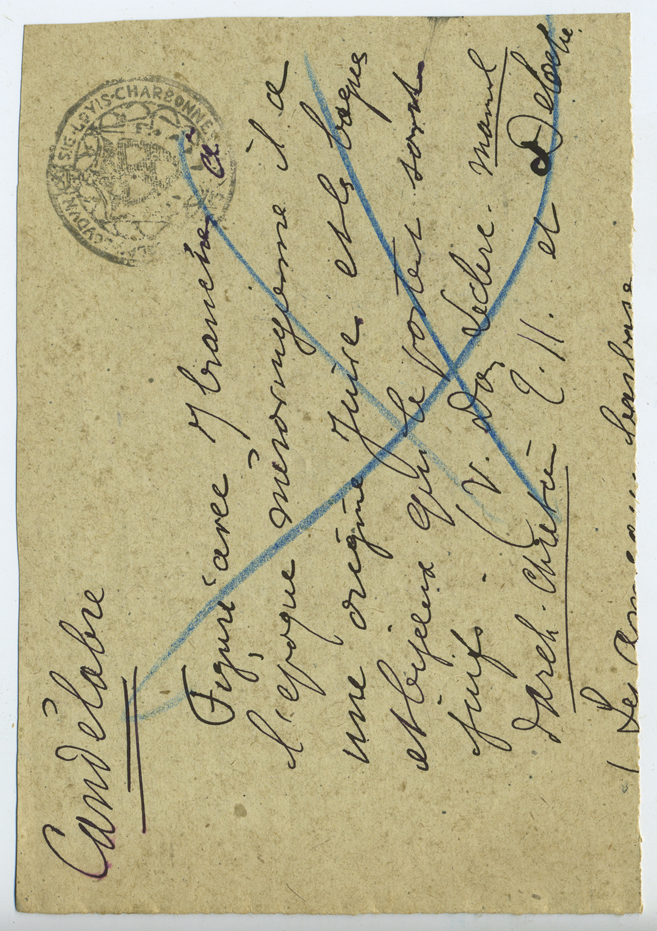 Candélabre
Figuré avec 7 branches à
l'époque mérovingienne il a
une origine juive et les bagues
et bijoux qui le portent sont
juifs. (V. Dom Leclerc. manuel
d'arch. Chrétie 2. 11. et Deloche
(Les anneaux
SIG·LOVIS·CHARBONNE